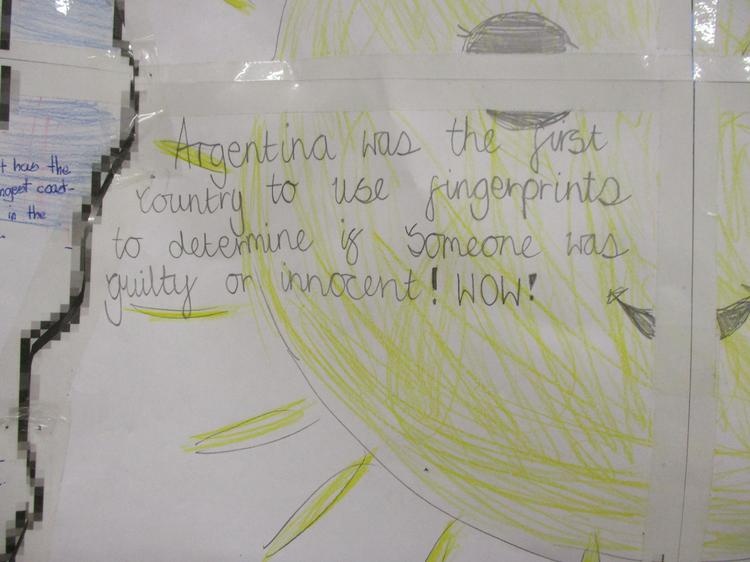 Argentina was the first
country to use fingerprints
to determine if someone was
guilty or innocent! WOW!
t has the
ngest coast-
in the